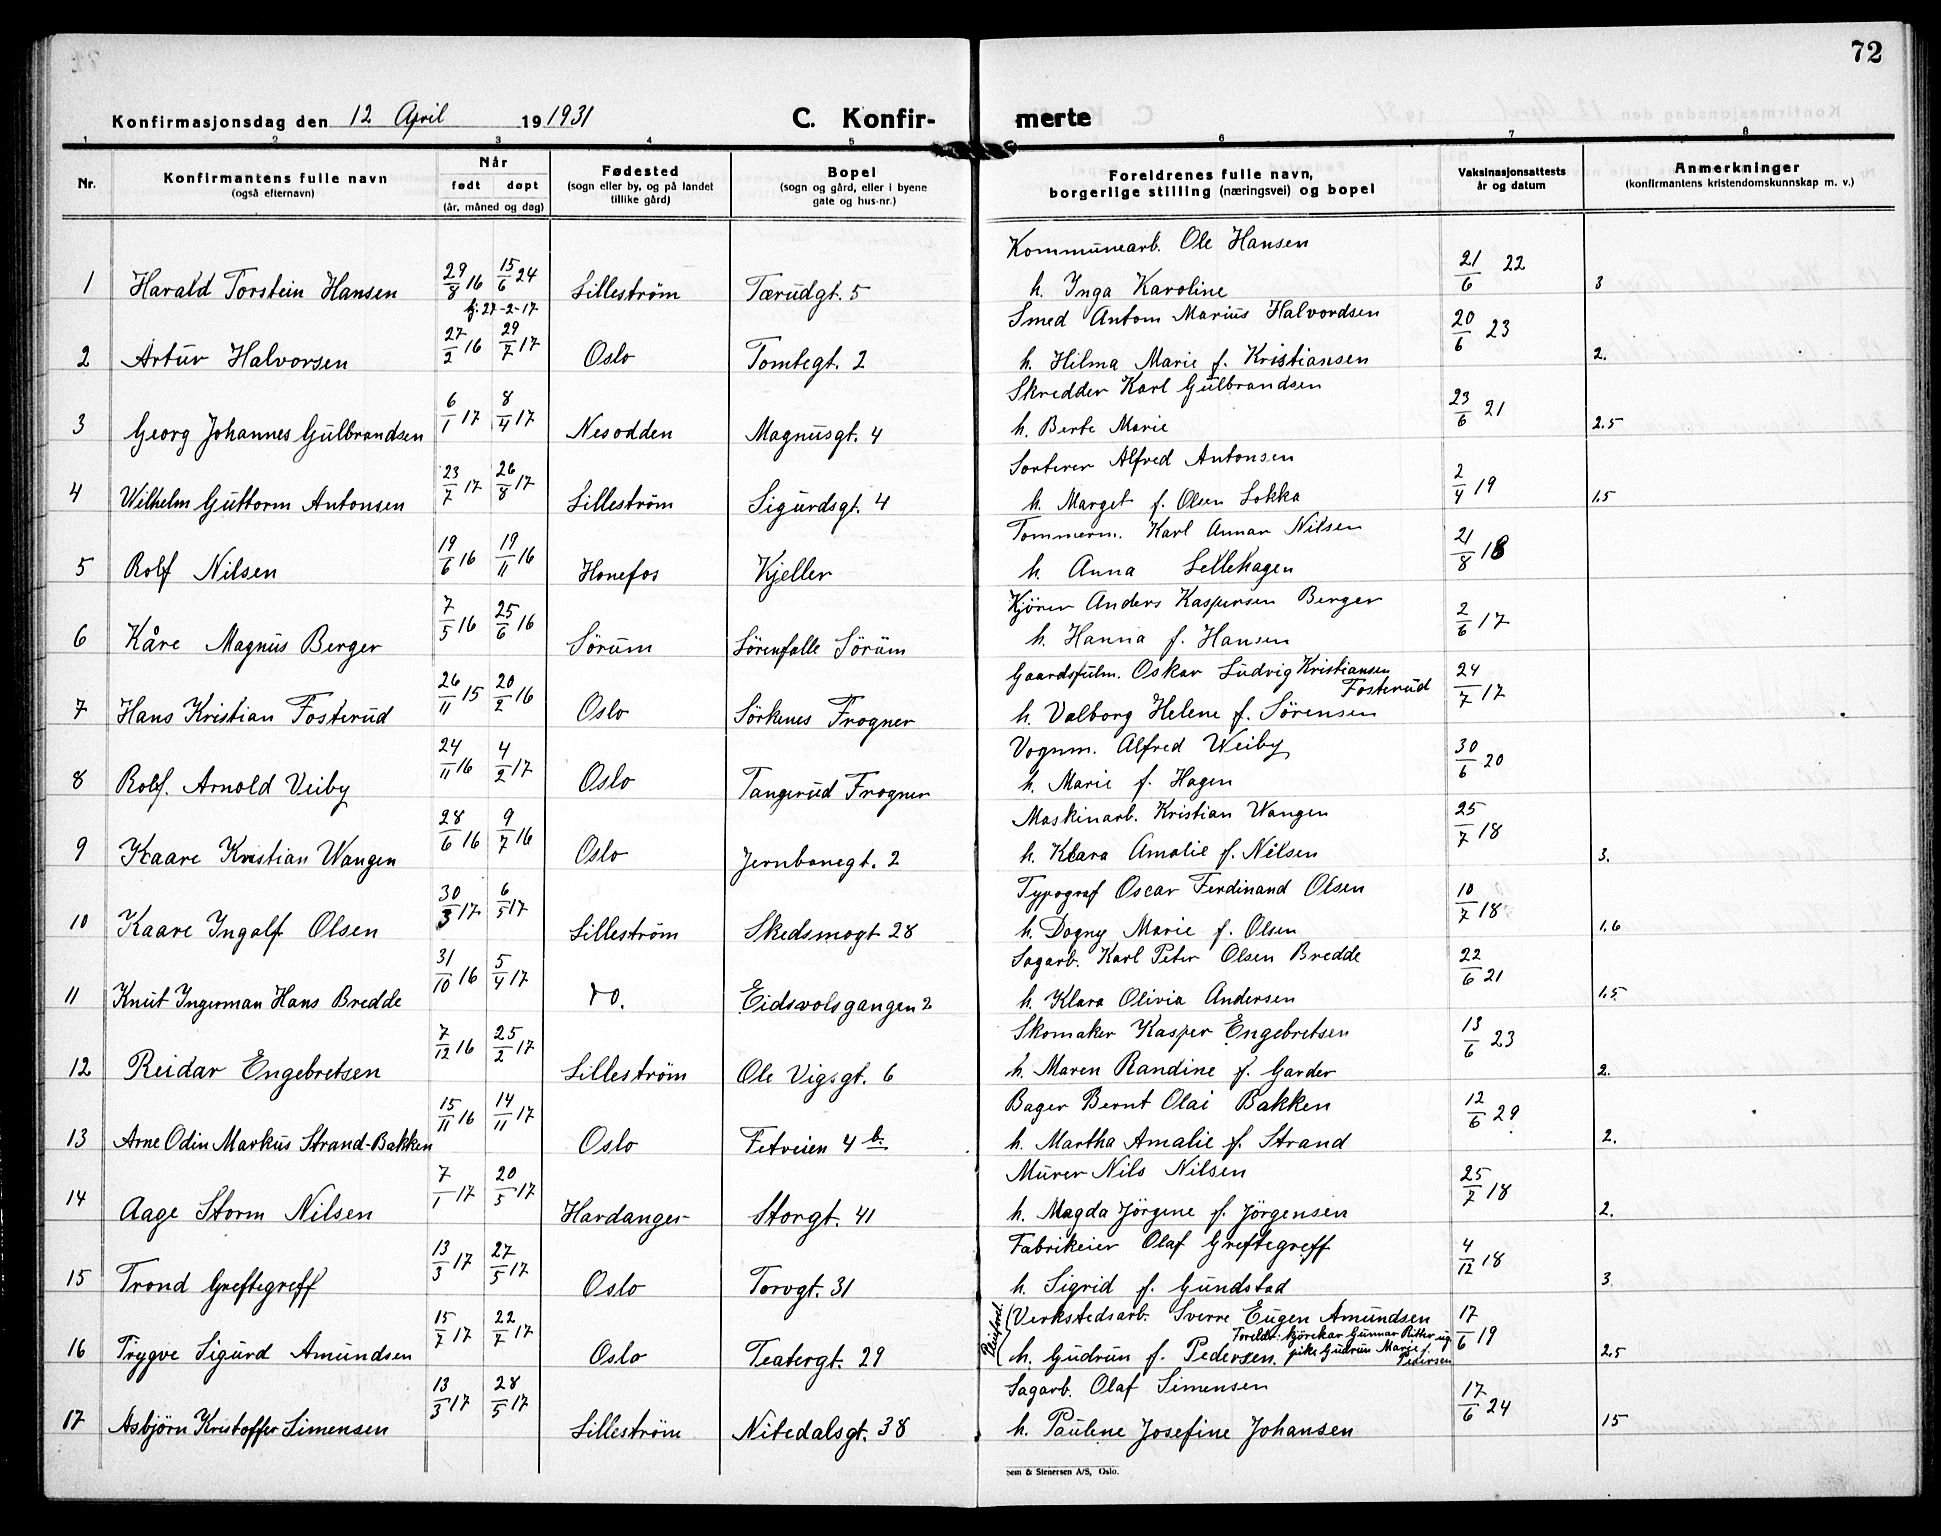 72
Konfirmasjonsdag den 12 April 19 1931 C. Konfir- merte
1 2 3 4 5 6 7 8
Nr. Konfirmantens fulle navn (også efternavn) Når født døpt (år, måned og dag) Fødested (sogn eller by, og på landet tillike gård) Bopel (sogn og gård, eller i byene gate og hus-nr.) Foreldrenes fulle navn, borgerlige stilling (næringsvei) og bopel Vaksinasjonsattests år og datum Anmerkninger (konfirmantens kristendomskunnskap m. v.)
Kommunearb. Ole Hansen
1 Harald Torstein Hansen 29/8 16 15/6 24 Lilleström Tærudgt. 5 h. Inga Karoline 21/6 22 3
27-2-17
Smed Antom Marius Halvordsen
2 Artur Halvorsen 27/2 16 29/7 17 Oslo Tomtegt. 2 h. Hilma Marie f. Kristiansen 20/6 23 2.
Skredder Karl Gulbrandsen
3 Georg Johannes Gulbrandsen 6/1 17 8/4 17 Nesodden Magnusgt. 4 h. Berte Marie 23/6 21 2.5
Sorterer Alfred Antonsen
4 Wilhelm Guttorm Antonsen 23/7 17 26/8 17 Lilleström Sigurdsgt. 4 h. Marget f. Olsen Lokka 2/4 19 1.5
Tommerm. Karl Annar Nilsen
5 Rolf Nilsen 19/6 16 19/11 16 Honefos Kjeller h. Anna Lellehagen 21/8 18
Kjörer Anders Kaspersen Berger
6 Kåre Magnus Berger 7/5 16 25/6 16 Sörum Sörenfalle Sörum h. Hanna f. Hansen 2/6 17
Gaardsfulm. Oskar Ludvig Kristiansen
Fosterud
7 Hans Kristian Fosterud 26/11 15 20/2 16 Oslo Sörkenes Frogner h. Valborg Helene f. Sörensen 24/7 17
Vognm. Alfred Weiby
8 Rolf. Arnold Veiby 24/11 16 4/2 17 Oslo Tangerud Frogner h. Marie f. Hagen 30/6 20
Maskinarb. Kristian Wangen
9 Kaare Kristian Wangen 28/6 16 9/7 16 Oslo Jernbanegt. 2 h. Klara Amalie f. Nilsen 25/7 18 3.
Typograf Oscar Ferdinand Olsen
10 Kaare Ingolf Olsen 30/3 17 6/5 17 Lilleström Skedsmogt 28 h. Dagny Marie f. Olsen 10/7 18 1.6
Sagarb. Karl Peter Olsen Bredde
11 Knut Ingerman Hans Bredde 31/10 16 5/4 17 do. Eidsvolsgangen 2 h. Klara Olivia Andersen 22/6 21 1.5
Skomaker Kasper Engebretsen
12 Reidar Engebretsen 7/12 16 25/2 17 Lilleström Ole Vigsgt. 6 h. Maren Randine f. Garder 13/6 23 2.
Bager Bernt Olai Bakken
13 Arne Odin Markus Strand-Bakken 15/11 16 14/11 17 Oslo Fetveien 4 b. h. Martha Amalie f. Strand 12/6 29 2.
Murer Nils Nilsen
14 Aage Storm Nilsen 7/1 17 20/5 17 Hardanger Storgt. 41 h. Magda Jörgine f. Jörgensen 25/7 18 2.
Fabrikeier Olaf Greftegreff
15 Trond Greftegreff 13/3 17 27/5 17 Oslo Torvgt. 31 h. Sigrid f. Gundstad 4/12 18 3
Pleieford. Verkstedsarb. Sverre Eugen Amundsen
Foreldr: kjörekar Gunnar Ritter og
16 Trygve Sigurd Amundsen 15/7 17 22/7 17 Oslo Teatergt. 29 h. Gudrun f. Pedersen. pike Gudrun Marie f. Pedersen 17/6 19 2.5
Sagarb. Olaf Simensen
17 Asbjörn Kristoffer Simensen 13/3 17 28/5 17 Lilleström Nitedalsgt. 38 h. Pauline Josefine Johansen 17/6 24 15
Sem & Stenersen A/S, Oslo.